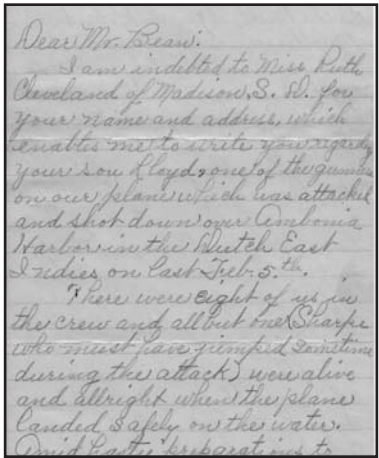 Dear Mr. Bean:
I am indebted to Miss Ruth
Cleveland of Madison, S. D. for
your name and address, which
enables me to write you regardg
your son Lloyd, one of the gunners
on our plane which was attacked
and shot down over Ambonia
Harbor in the Dutch East
Indies on last Feb. 5th.
There were eight of us in
the crew and all but one (Sharpe
who must have jumped sometime
during the attack) were alive
and allright when the plane
landed safely on the water.
Amid hasty preparations to